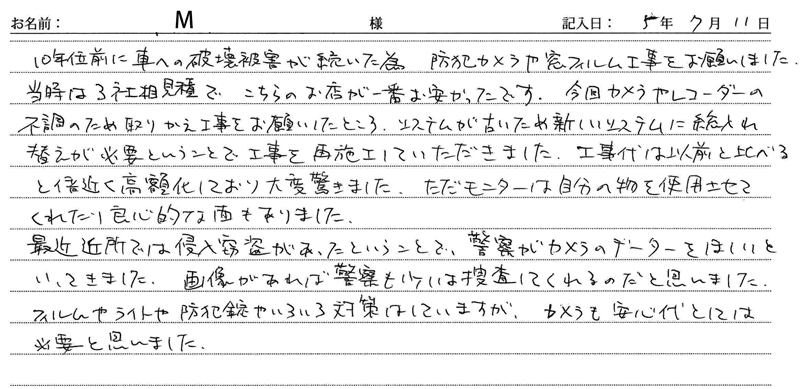 お名前： M 様 記入日： 5年 7月 11日
10年位前に車への破壊被害が続いた為 防犯カメラや窓フィルム工事をお願いしました.
当時は3社相見積で こちらのお店が一番お安かったです. 今回カメラやレコーダーの
不調のため取りかえ工事をお願いしたところ、システムが古いため新しいシステムに総入れ
替えが必要ということで工事を再施工していただきました. 工事代は以前と比べる
と倍近く高額化しており大変驚きました. ただモニターは自分の物を使用させて
くれたり良心的な面もありました.
最近近所では侵入窃盗があったということで、警察がカメラのデーターをほしいと
いってきました. 画像があれば警察も捜査してくれるのだと思いました.
フィルムやライトや防犯錠やいろいろ対策はしていますが、カメラも安心代としては
必要と思いました.